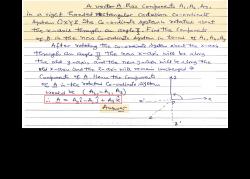 A vector A has components A₁, A₂, A₃,
in a right handed rectangular cartesian co-ordinate
system OXYZ. The co-ordinate system is rotated about
the x-axis through an angle π/2. Find the components
of A in the new co-ordinate system in terms of A₁, A₂, A₃
After rotating the co-ordinate system about the x-axis
through an angle π/2 the new x-axis will be along the
old y-axis and the new y-axis will be along the
old x-axis and the z-axis will remain unchanged
Components of A. Hence the components
of A in the rotated co-ordinate system
would be (A₂, -A₁, A₃)
∴ A = A₂î - A₁ĵ + A₃k̂
Answer